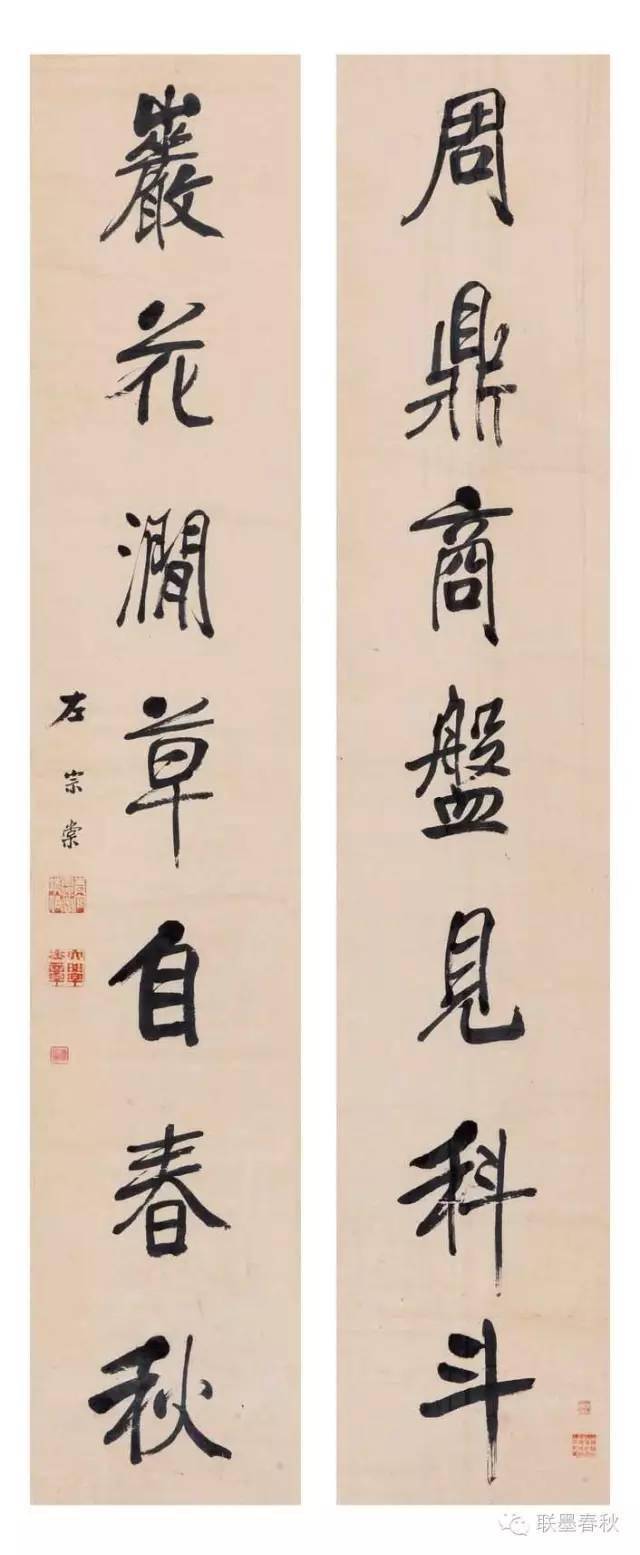 周鼎商盤見科斗
巖花澗草自春秋
左宗棠
联墨春秋